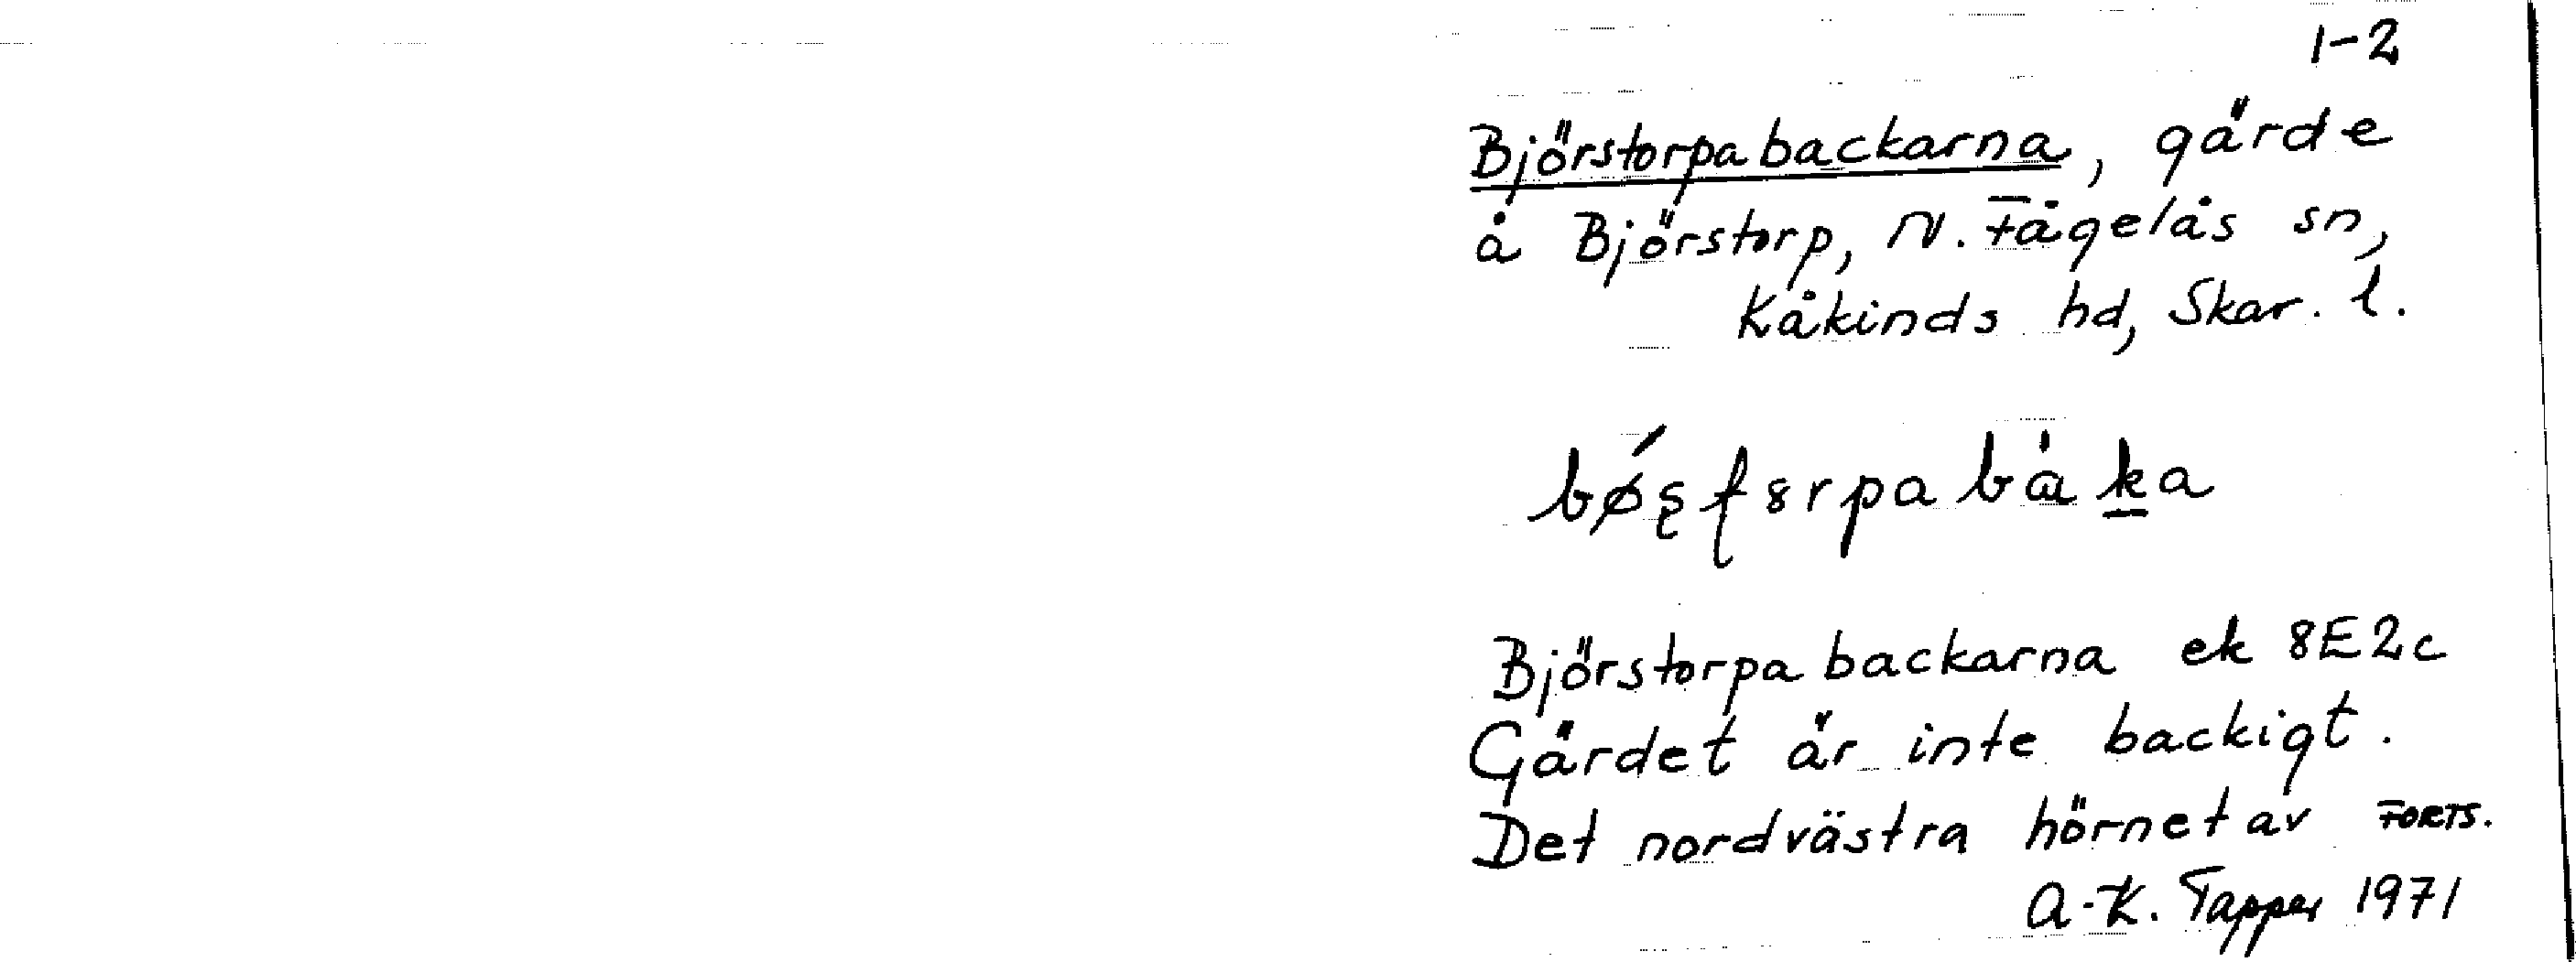 1-2
Björstorpabackarna, gärde
å Björstorp, N. Fågelås sn,
Kåkinds hd, Skar. l.
Björstorpabackarna ek 8E2c
Gärdet är inte backigt.
Det nordvästra hörnet av FORTS.
A-K. Tapper 1971